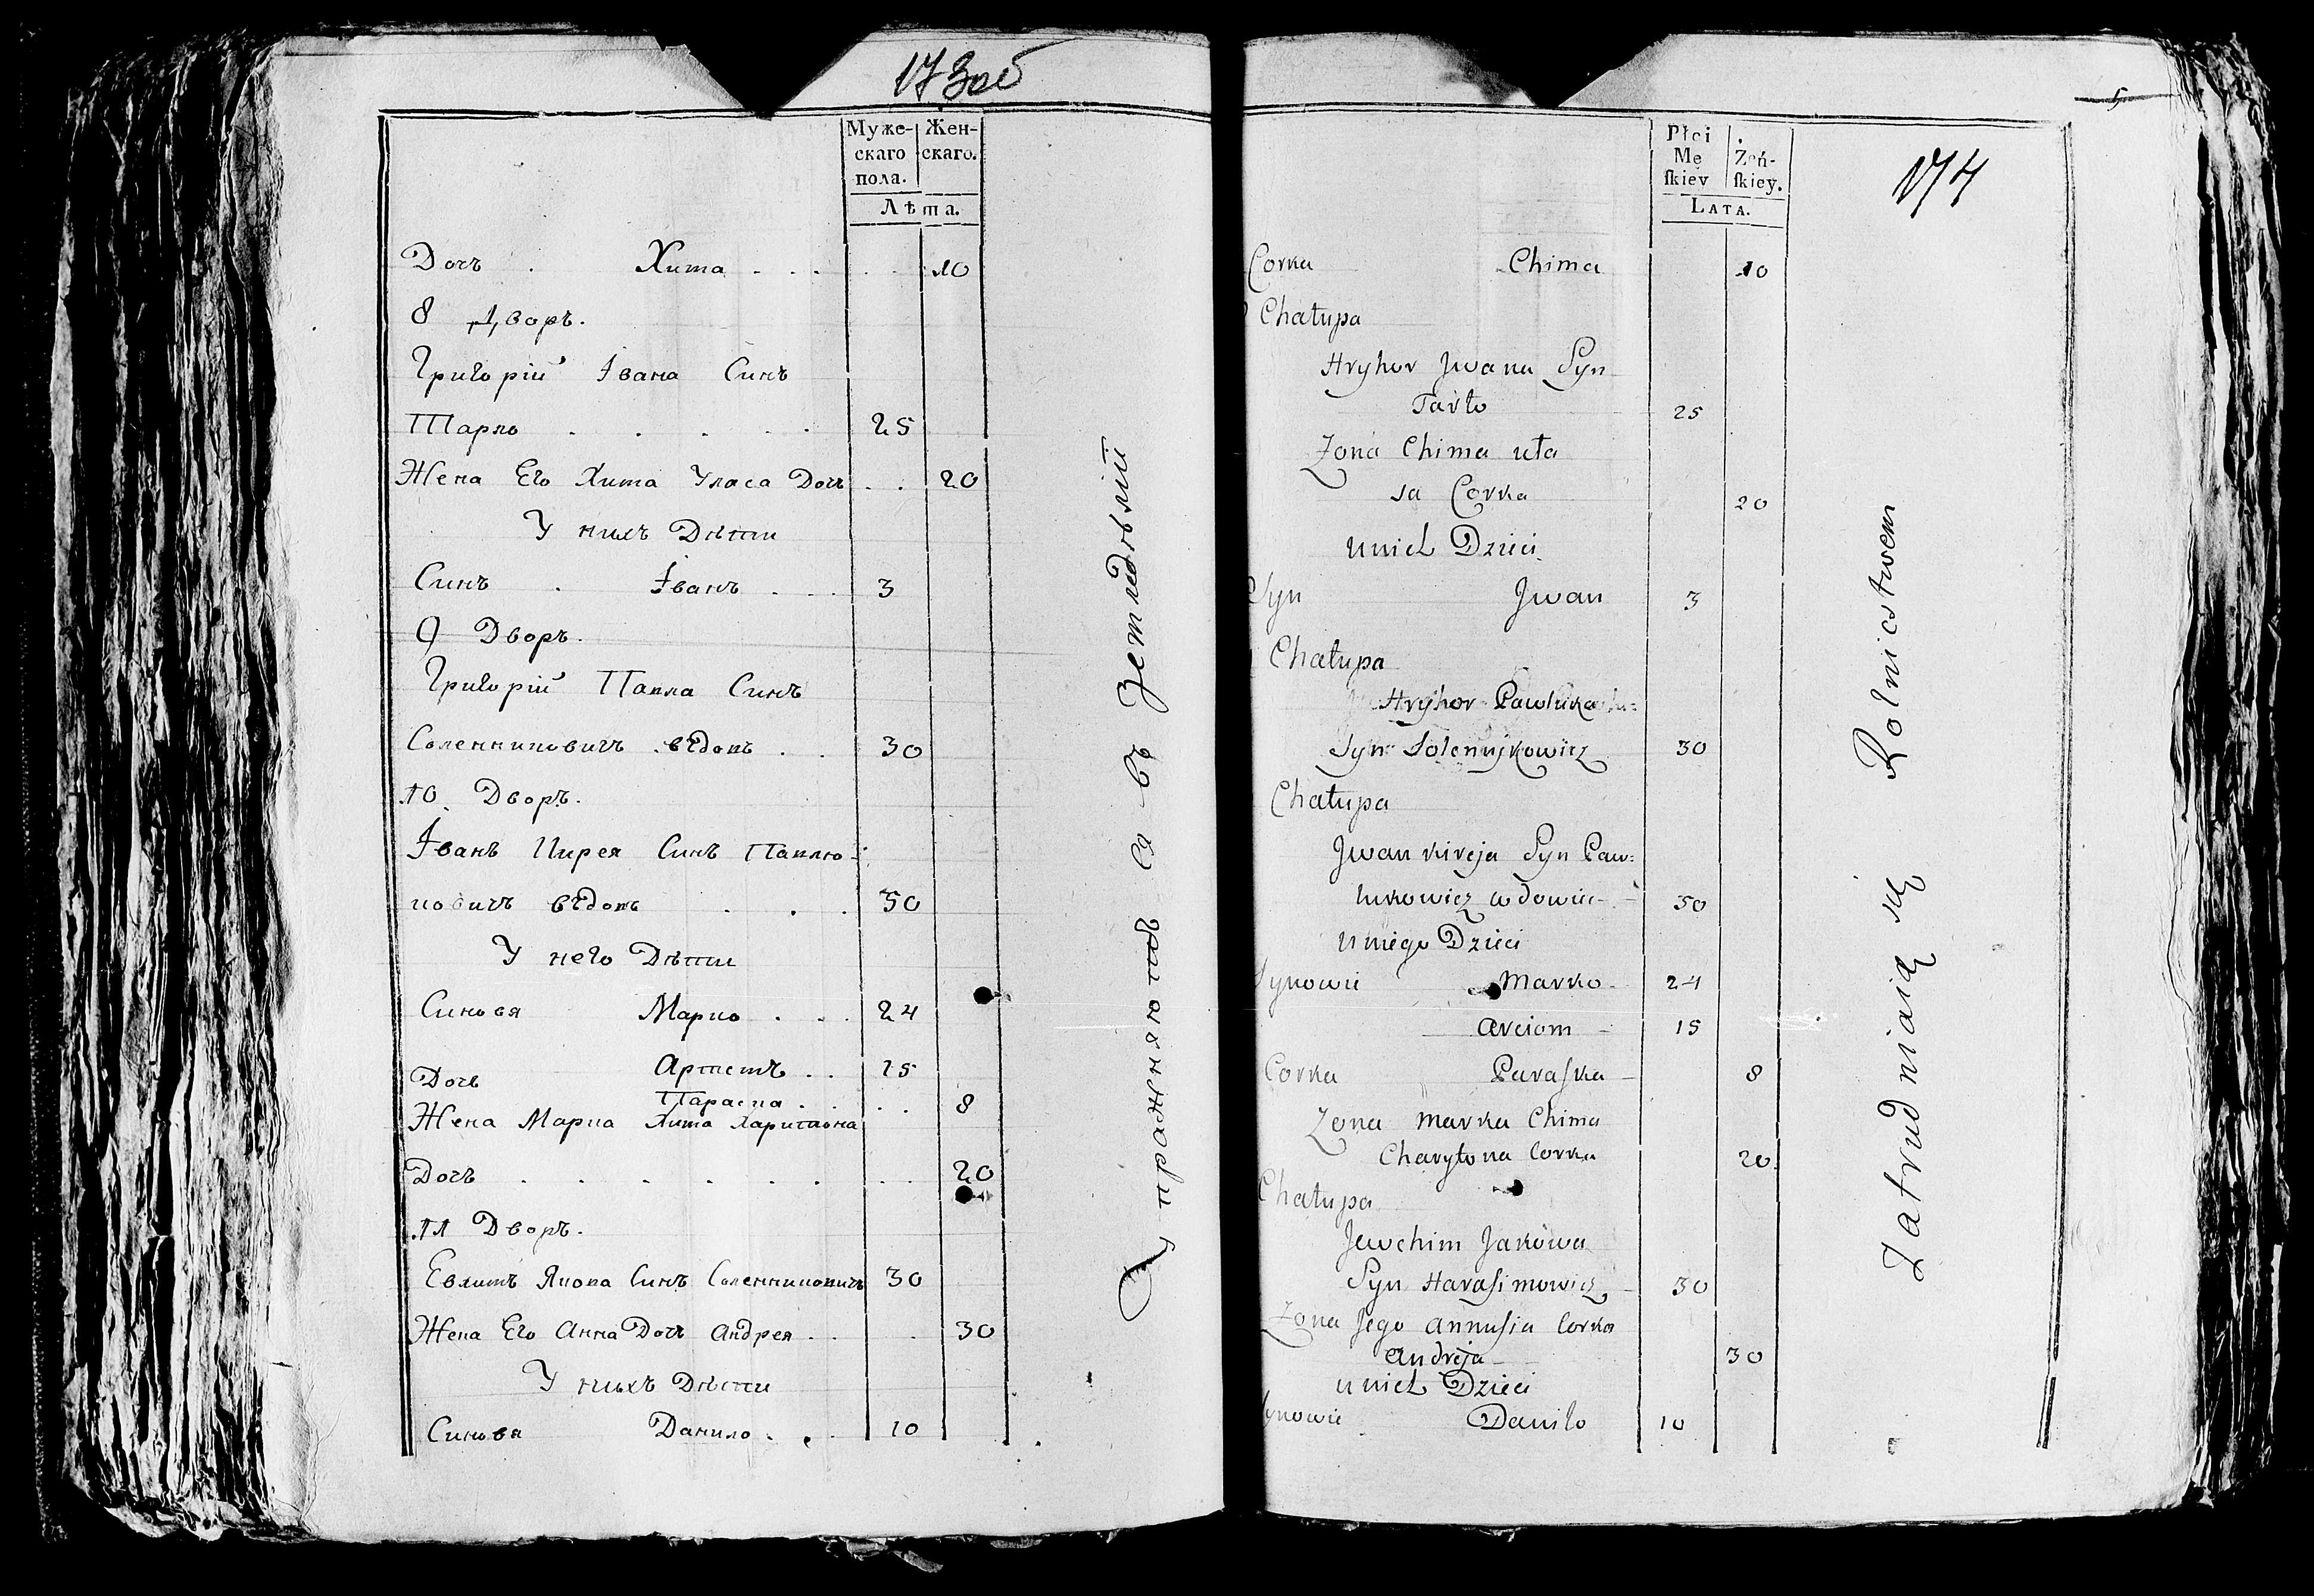 173об
Муже-
скаго
пола.
Жен-
скаго.
Лѣта.
Дочъ . Хима . . . . . 10
8 Дворъ.
Григорій Івана Синъ
Тарло . . . . . 25
Жена Его Хима Уласа Дочъ . . 20
У нихъ Дѣти
Синъ . Іванъ . . . 3
9 Дворъ.
Григорій Павла Синъ
30
10 Дворъ.
Іванъ Кирея Синъ Павлю-
ковичъ 50
У него Дѣти
Синовя Марко . . . 24
Артемъ . . 15
Дочъ
Параска . . . . 8
Жена Марка Хима Харитона
Дочъ . . . . . . . . 20
11 Дворъ.
Якова Синъ 30
Жена Его Анна Дочъ Андрея . . . 30
У нихъ Дѣти
Синовя Данило . . . 10
ся въ
174
5
Płci
Mę
ſkiey
Zeń-
ſkiey.
LATA.
Corka Chima 10
Chałupa
Hryhor Jwana Syn
Tarło 25
Zona Chima uła
sa Corka 20
unich Dzieci
Syn Jwan 3
Chałupa
Hryhor Pawluka
Syn Solennykowicz 30
Chałupa
Jwan kireja Syn Paw:
lukowicz wdowiec 50
u niego Dzieci
Synowie Marko 24
Arciom 15
Corka Paraſka 8
Zona Marka Chima
Charytona Corka 20
Chałupa
Jewchim Jakowa
Syn Haraſimowicz 30
Zona Jego Annuſia Corka
Andreja 30
unich Dzieci
Synowie Daniło 10
Zatrudniaią się Rolnictwem